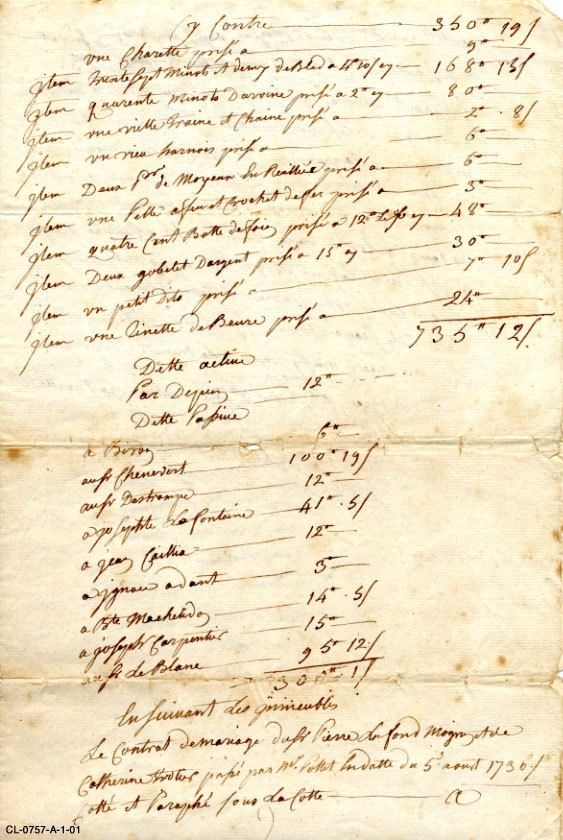 cy Contre 350" 19 s
une Charette prisé a 9"
Jtem trente sept Minots et demy de Bled a 4" 10 s cy 168" 15 s
Jtem quarente Minots Davoine prisé a 2" cy 80"
Jtem une vielle traine et Chaine prisé a 2" 8 s
Jtem un vieu harnois prisé a 6"
Jtem Deux de Moyeau prisé a 6"
Jtem une Pelle a feu et Crochet de fer prisé a 3"
Jtem quatre Cent Botte de foin prisé a 12" Le cy 48"
Jtem Deux gobelet Dargent prisé a 15" cy 30"
Jtem un petit dito prisé a 7" 10 s
Jtem une Tinette de Beure prisé a 24"
735" 12 s
Dette active
Par 12"
Dette Passive
a Biron 6"
au sr Chenevert 100" 19 s
au sr Destrampe 12"
a josephte La fontaine 41" 5 s
a jean Caillia 12"
a jgnace adant 3"
a Bte 14" 5 s
a joseph Carpentier 15"
au sr le Blanc 95" 12 s
300" 1 s
En suivant Les jmmeubles
Le Contrat de mariage du sr Pierre La fond Mogras et de
Catherine trotier passé par Mr. Pottet En datte du 5e. aoust 1730
Cotté et Paraphé sous La Cotte A
CL-0757-A-1-01